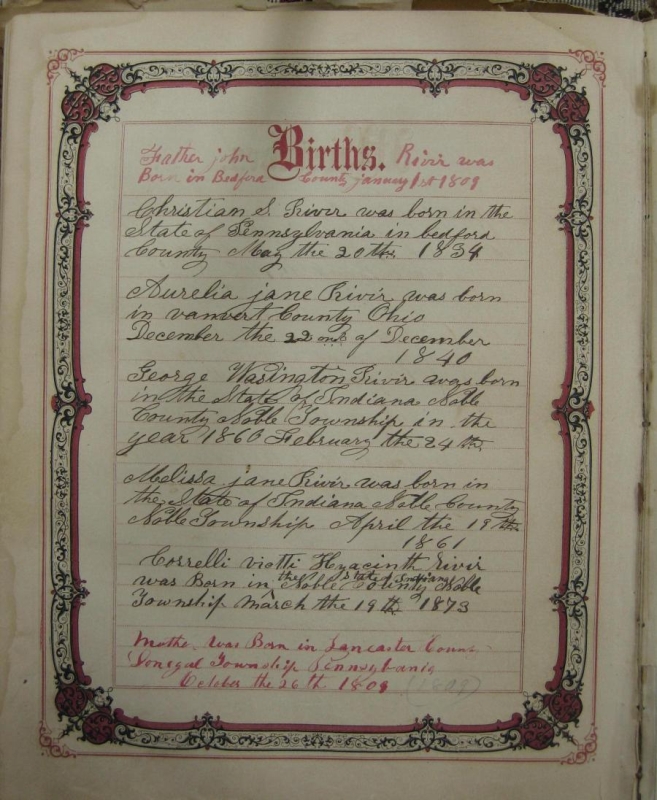 Births.
Father john Rivir was
Born in Bedford County january 1st 1809
Christian S. Rivir was born in the
State of Pennsylvania in bedford
County May the 20th 1834
Aurelia jane Rivir was born
in vanvert County Ohio
December the 22 ond of December
1840
George Wasington Rivir was born
in the State of Indiana Noble
County Noble Township in the
year 1860 February the 24th
Melissa jane Rivir was born in
the State of Indiana Noble County
Noble Township April the 19th
1861
Correlli viotti Hyacinth Rivir
the State of Indiana
was Born in Noble County Noble
Township March the 19th 1873
Mother was Born in Lancaster
Donegal Township Pennsylvania
October the 26th 1809 (1809)